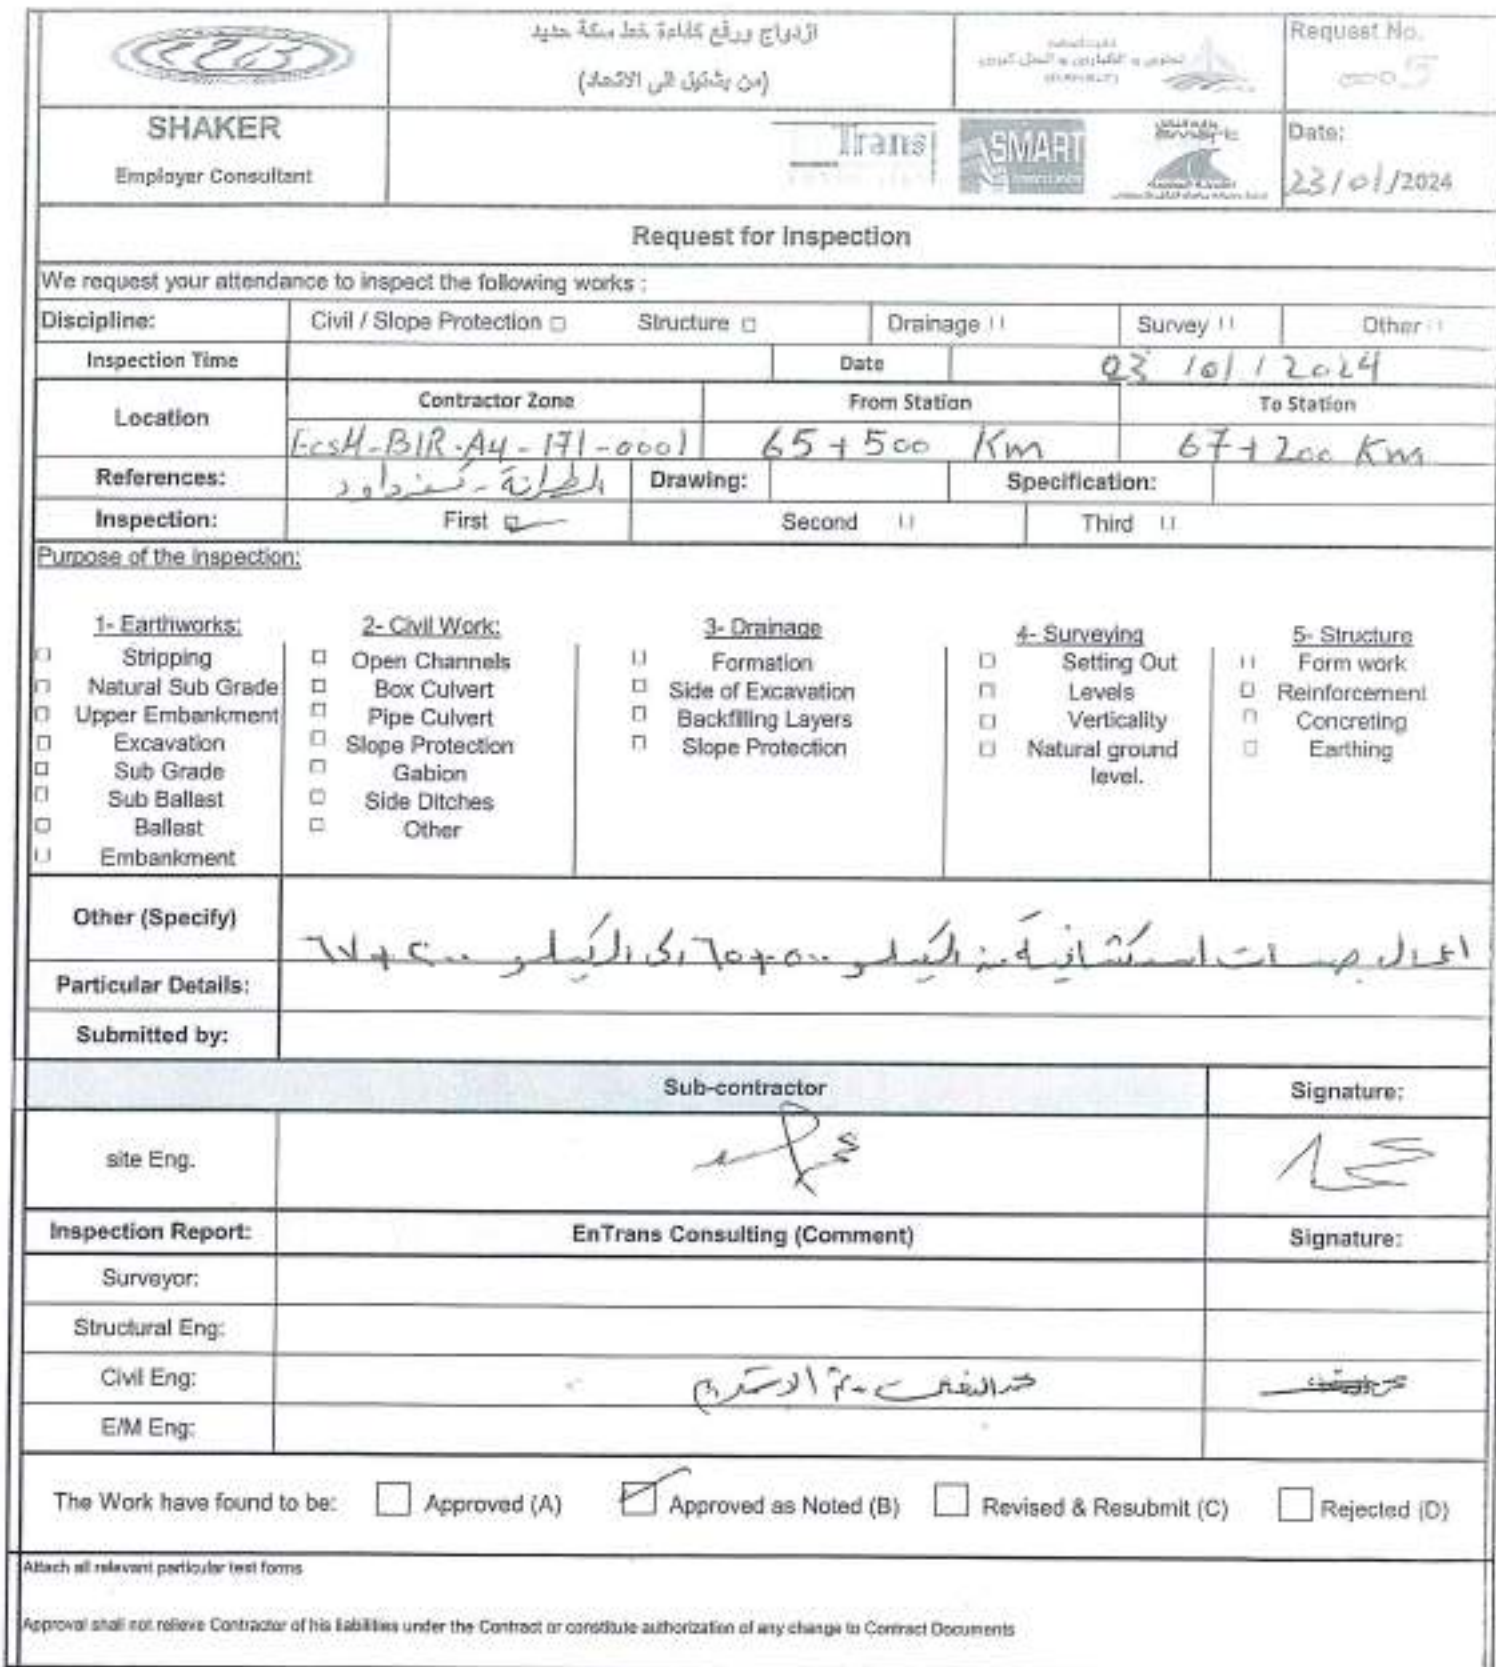 ازدواج ورفع كفاءة خط سكة حديد
(من بشتيل الى الاتحاد)
Request No.
0005
SHAKER
Employer Consultant
Trans
SMART
Date:
23/01/2024
Request for Inspection
We request your attendance to inspect the following works :
Discipline: Civil / Slope Protection Structure Drainage Survey Other
Inspection Time Date 23/01/2024
Location Contractor Zone From Station To Station
65+500 Km 67+200 Km
References: الطرانة - كفر داود Drawing: Specification:
Inspection: First Second Third
Purpose of the inspection:
1- Earthworks:
Stripping
Natural Sub Grade
Upper Embankment
Excavation
Sub Grade
Sub Ballast
Ballast
Embankment
2- Civil Work:
Open Channels
Box Culvert
Pipe Culvert
Slope Protection
Gabion
Side Ditches
Other
3- Drainage
Formation
Side of Excavation
Backfilling Layers
Slope Protection
4- Surveying
Setting Out
Levels
Verticality
Natural ground
level.
5- Structure
Form work
Reinforcement
Concreting
Earthing
Other (Specify)
اعمال جسات استكشافية من الكيلو ٥٠٠+٦٥ الى الكيلو ٢٠٠+٦٧
Particular Details:
Submitted by:
Sub-contractor Signature:
site Eng.
Inspection Report: EnTrans Consulting (Comment) Signature:
Surveyor:
Structural Eng:
Civil Eng:
E/M Eng:
The Work have found to be: Approved (A) Approved as Noted (B) Revised & Resubmit (C) Rejected (D)
Attach all relevant particular test forms
Approval shall not relieve Contractor of his liabilities under the Contract or constitute authorization of any change to Contract Documents